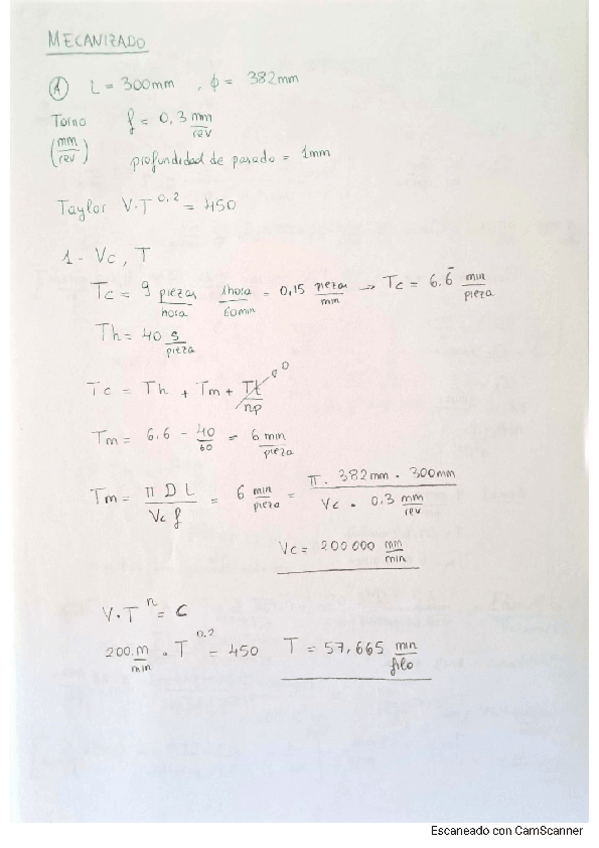 MECANIZADO
Ⓐ L = 300mm , ϕ = 382mm
Torno f = 0,3 mm/rev
(mm/rev) profundidad de pasada = 1mm
Taylor V·T^0,2 = 450
1- Vc, T
Tc = 9 piezas/hora 1hora/60min = 0,15 piezas/min → Tc = 6.6̄ min/pieza
Th = 40 s/pieza
Tc = Th + Tm + Tt/np 0
Tm = 6.6 - 40/60 = 6 min/pieza
Tm = π D L / Vc f = 6 min/pieza = π · 382mm · 300mm / Vc · 0.3 mm/rev
Vc = 200 000 mm/min
V·T^n = C
200 m/min · T^0.2 = 450 T = 57.665 min/filo
Escaneado con CamScanner